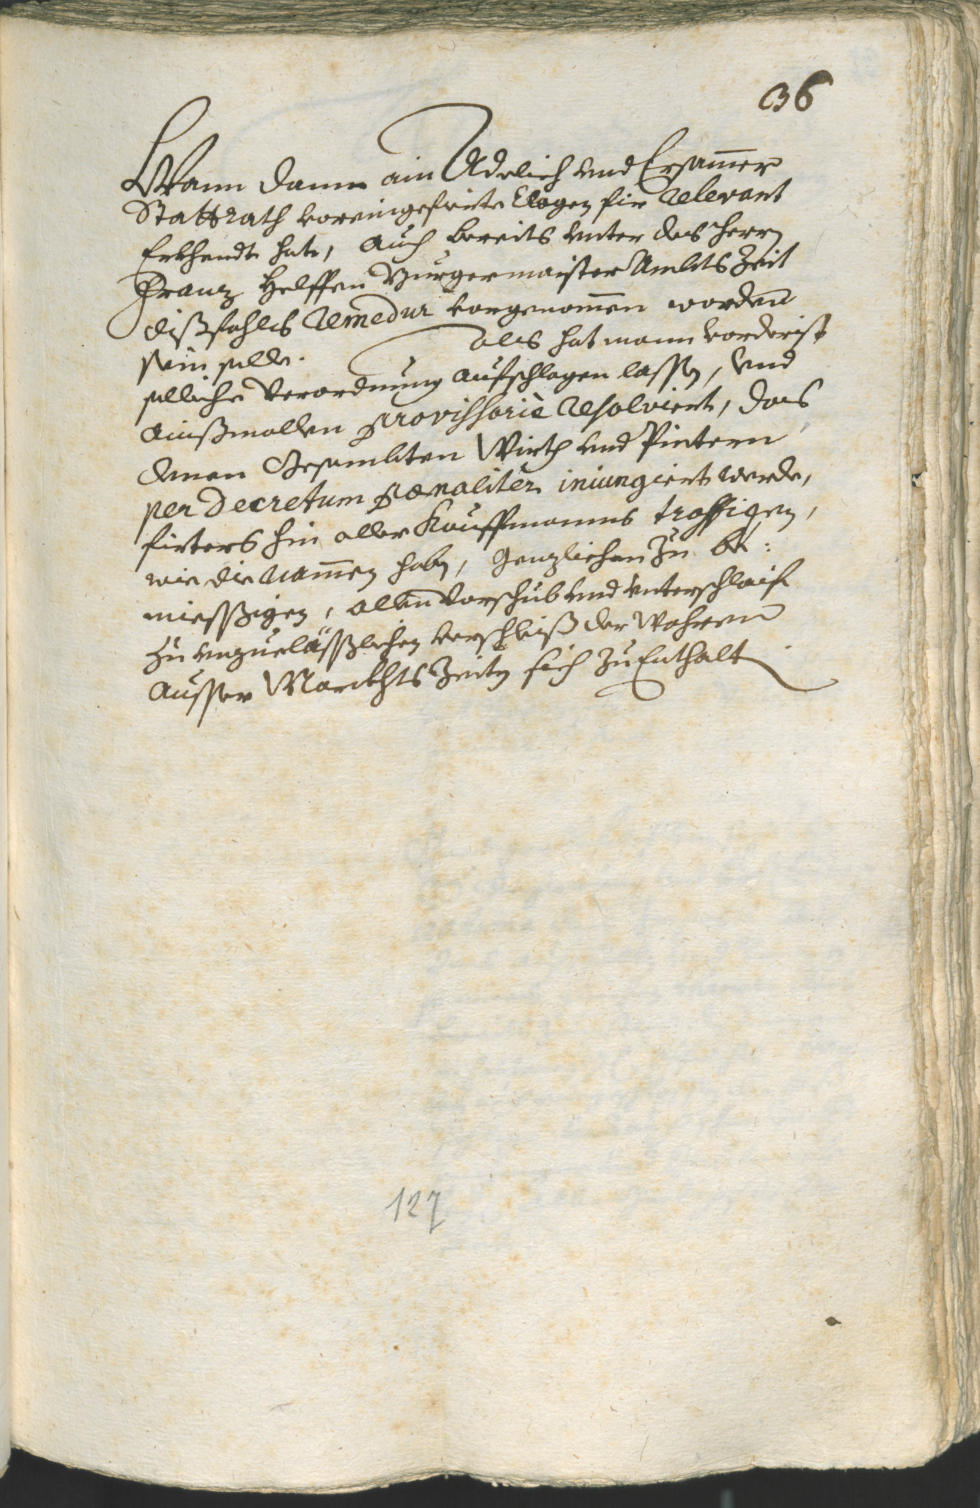 36
Wann dann ain Adelich und Ersamer
Stattrath voreingefierte Clagen für relevant
Erkhendt hat, Auch bereits unter des Herrn
Franz Helffen Burgermaister Ambts Zeit
dißfahls Remedur vorgenomen worden
sein solle. Als hat mann vorderist
solliche Verordnung aufschlagen lassen, und
ainßmallen provissorie resolviert, das
denen Gesambten Wirth und Pintern
per Decretum pœnaliter iniungiert werde,
firters hin aller Kauffmanns traffigen,
wie die Namen haben, Genzlichen Zu be:
miessßigen, allen Vorschub und unterschlaif
zu unzuelässlichen verschleiß der Wahren
Ausser Marckhts Zeiten sich Zu Enthalten
127